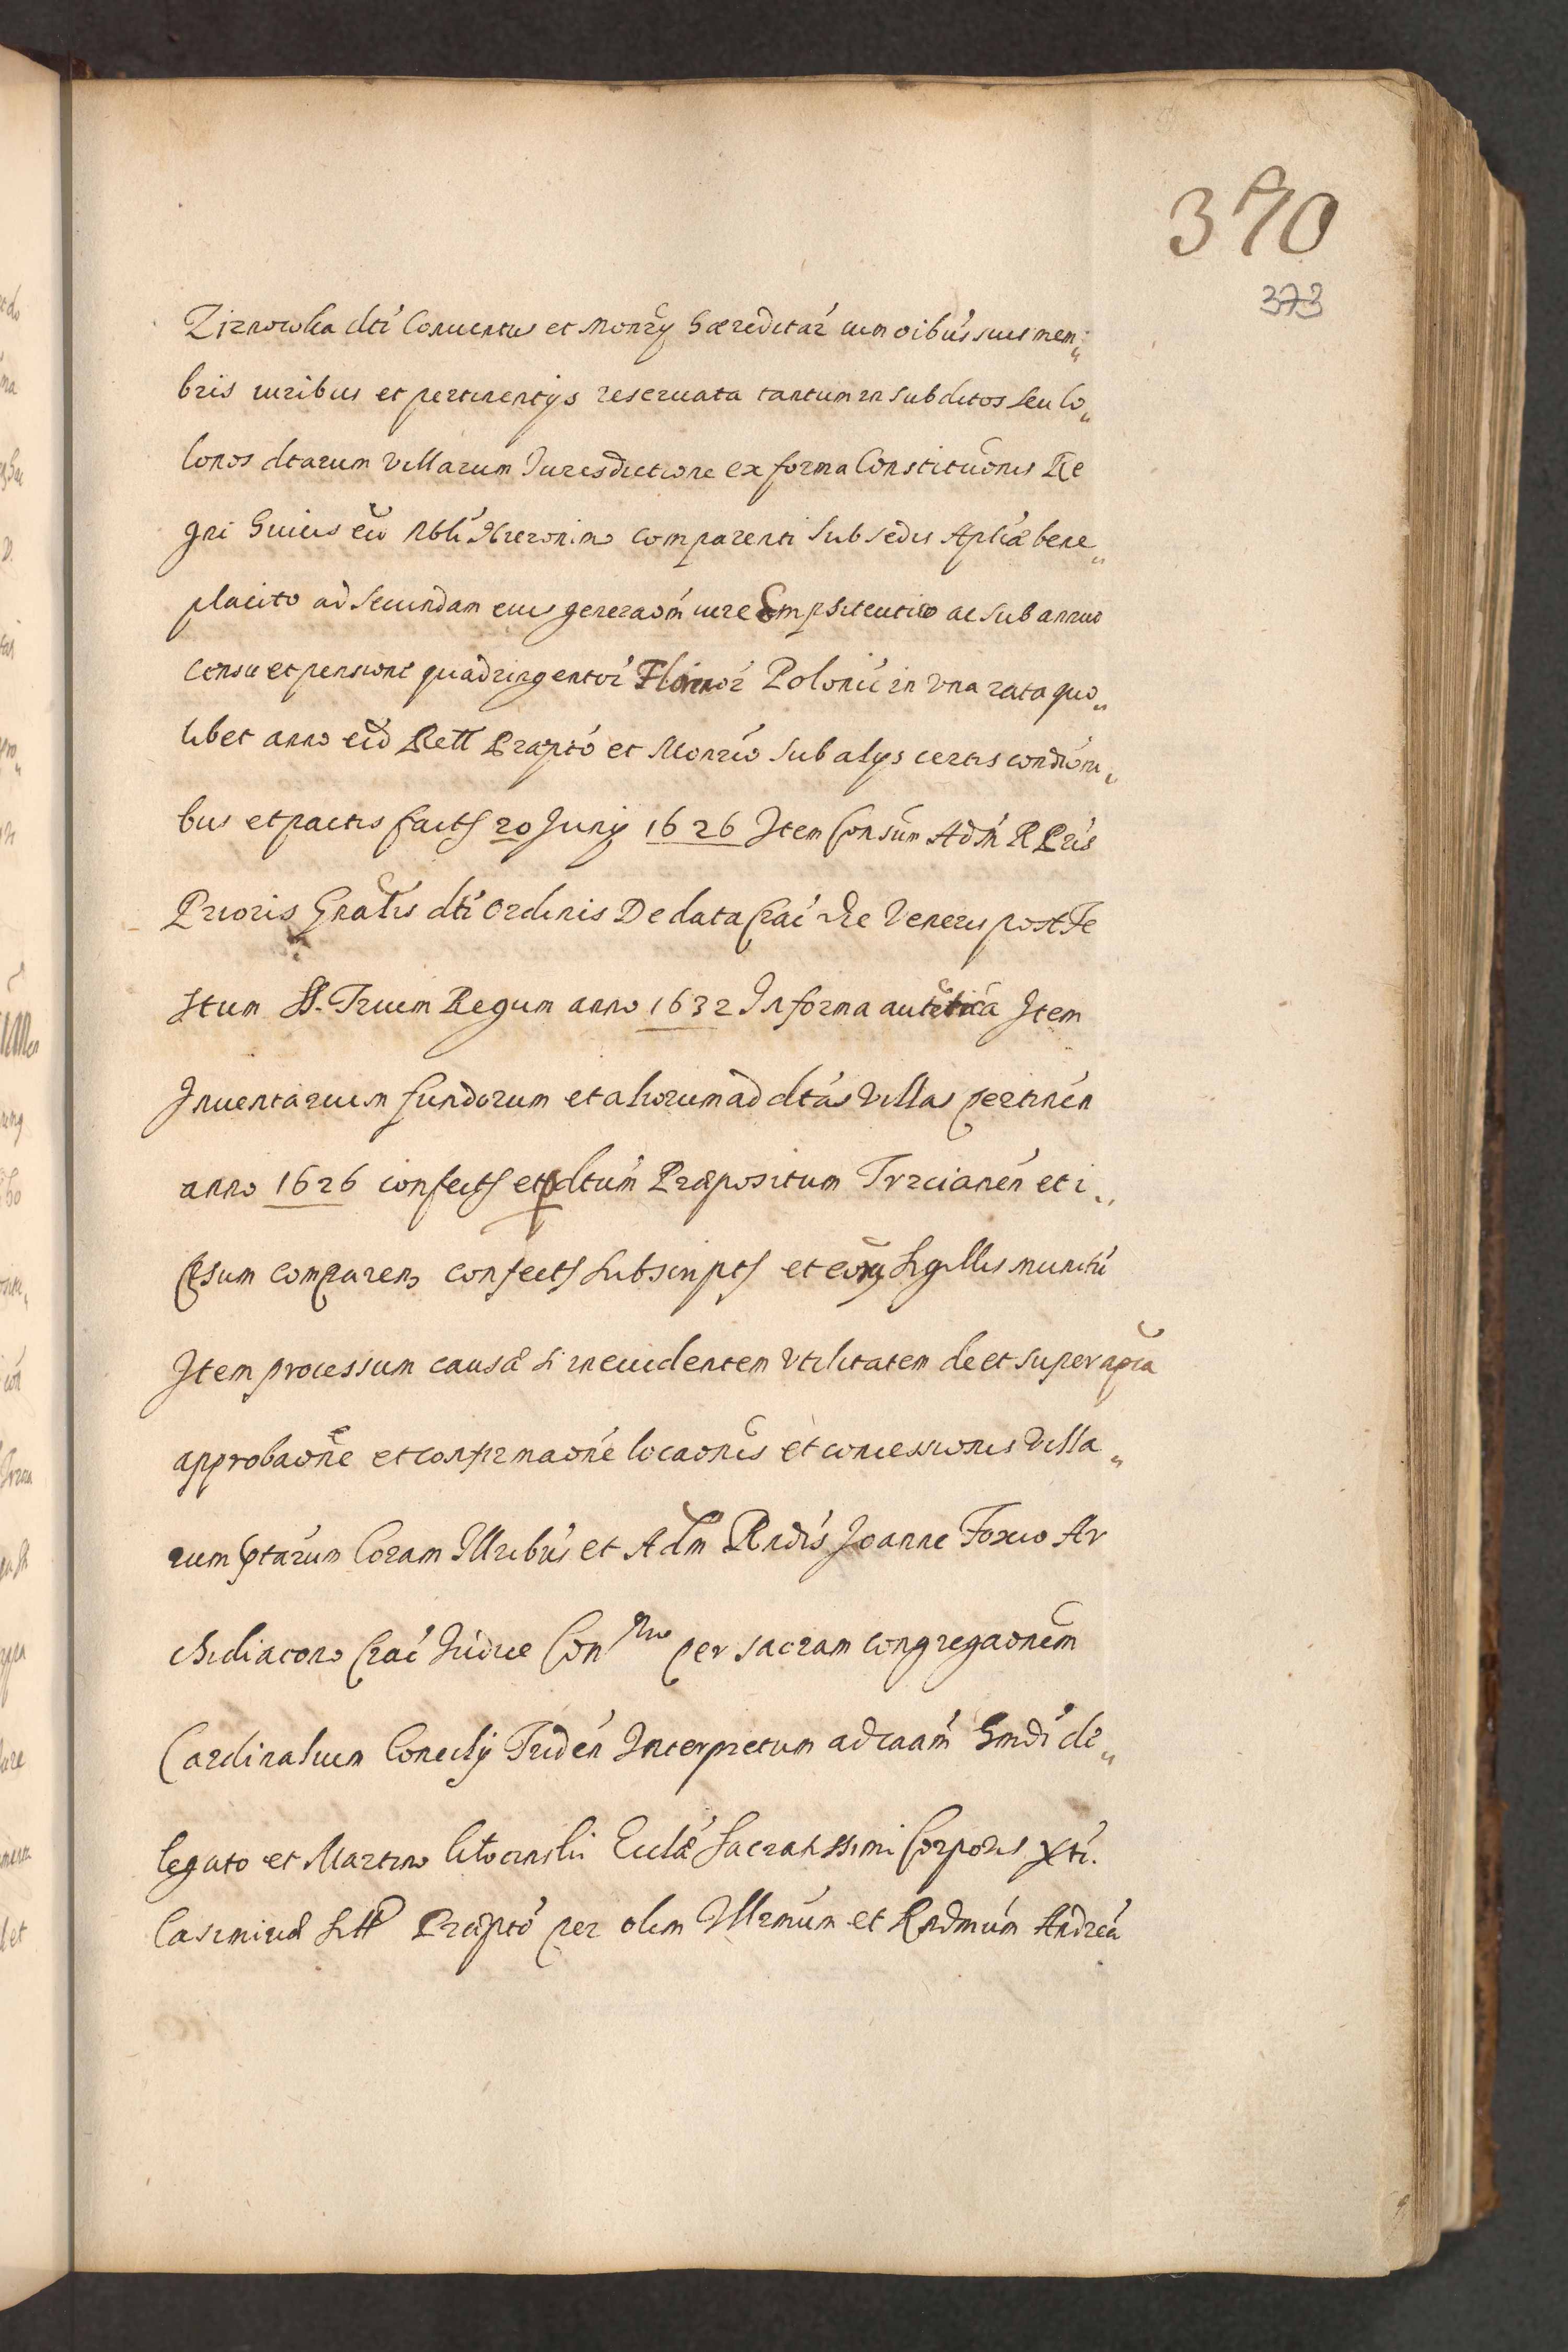 370
373
Zirnowka dti Conuentus et Monrÿ hæreditar cum oibus suis mem„
bris iuribus et pertinentijs reseruata tantum in subditos seu Co„
lonos dtarum Villarum Jurisdictione ex forma Constituonis Re
gni huius eid Nbli Hieronimo comparenti sub sedis Aplicæ bene„
placito ad secundam eius generaom iure Emphiteutico ac sub annuo
censu et pensione quadringentor Florenor Polonic in vna rata quo„
libet anno eid Rett Præpto et Monrio sub alijs certis condioni„
bus et pactis fact 20 Junij 1626 Item Consum Adm R Pris
Prioris Gnalis dti Ordinis De data Crac die Veneris post Fe
stum SS. Trium Regum anno 1632 In forma autetica Item
Inuentarium fundorum et aliorum ad dtas Villas pertinen
anno 1626 confect et p dtum Præpositum Trzcianen et i„
psum comparen confect subscript et eorum sigillis munitu
Item processum causæ si in euidentem vtilitatem de et super aplica
approbaone et confirmaone locaonis et concessionis Villa„
rum ptarum Coram Illribus et Adm Rndis Joanne Foxio Ar
chidiacono Crac Iudice Conrio per sacram congregaonem
Cardinalium Concilÿ Triden Interpretum ad caam hmdi de„
legato et Martino Ecclæ Sacratissimi Corporis Xti.
Casimiriæ Præpto per olim Illrmum et Rndmum Andrea